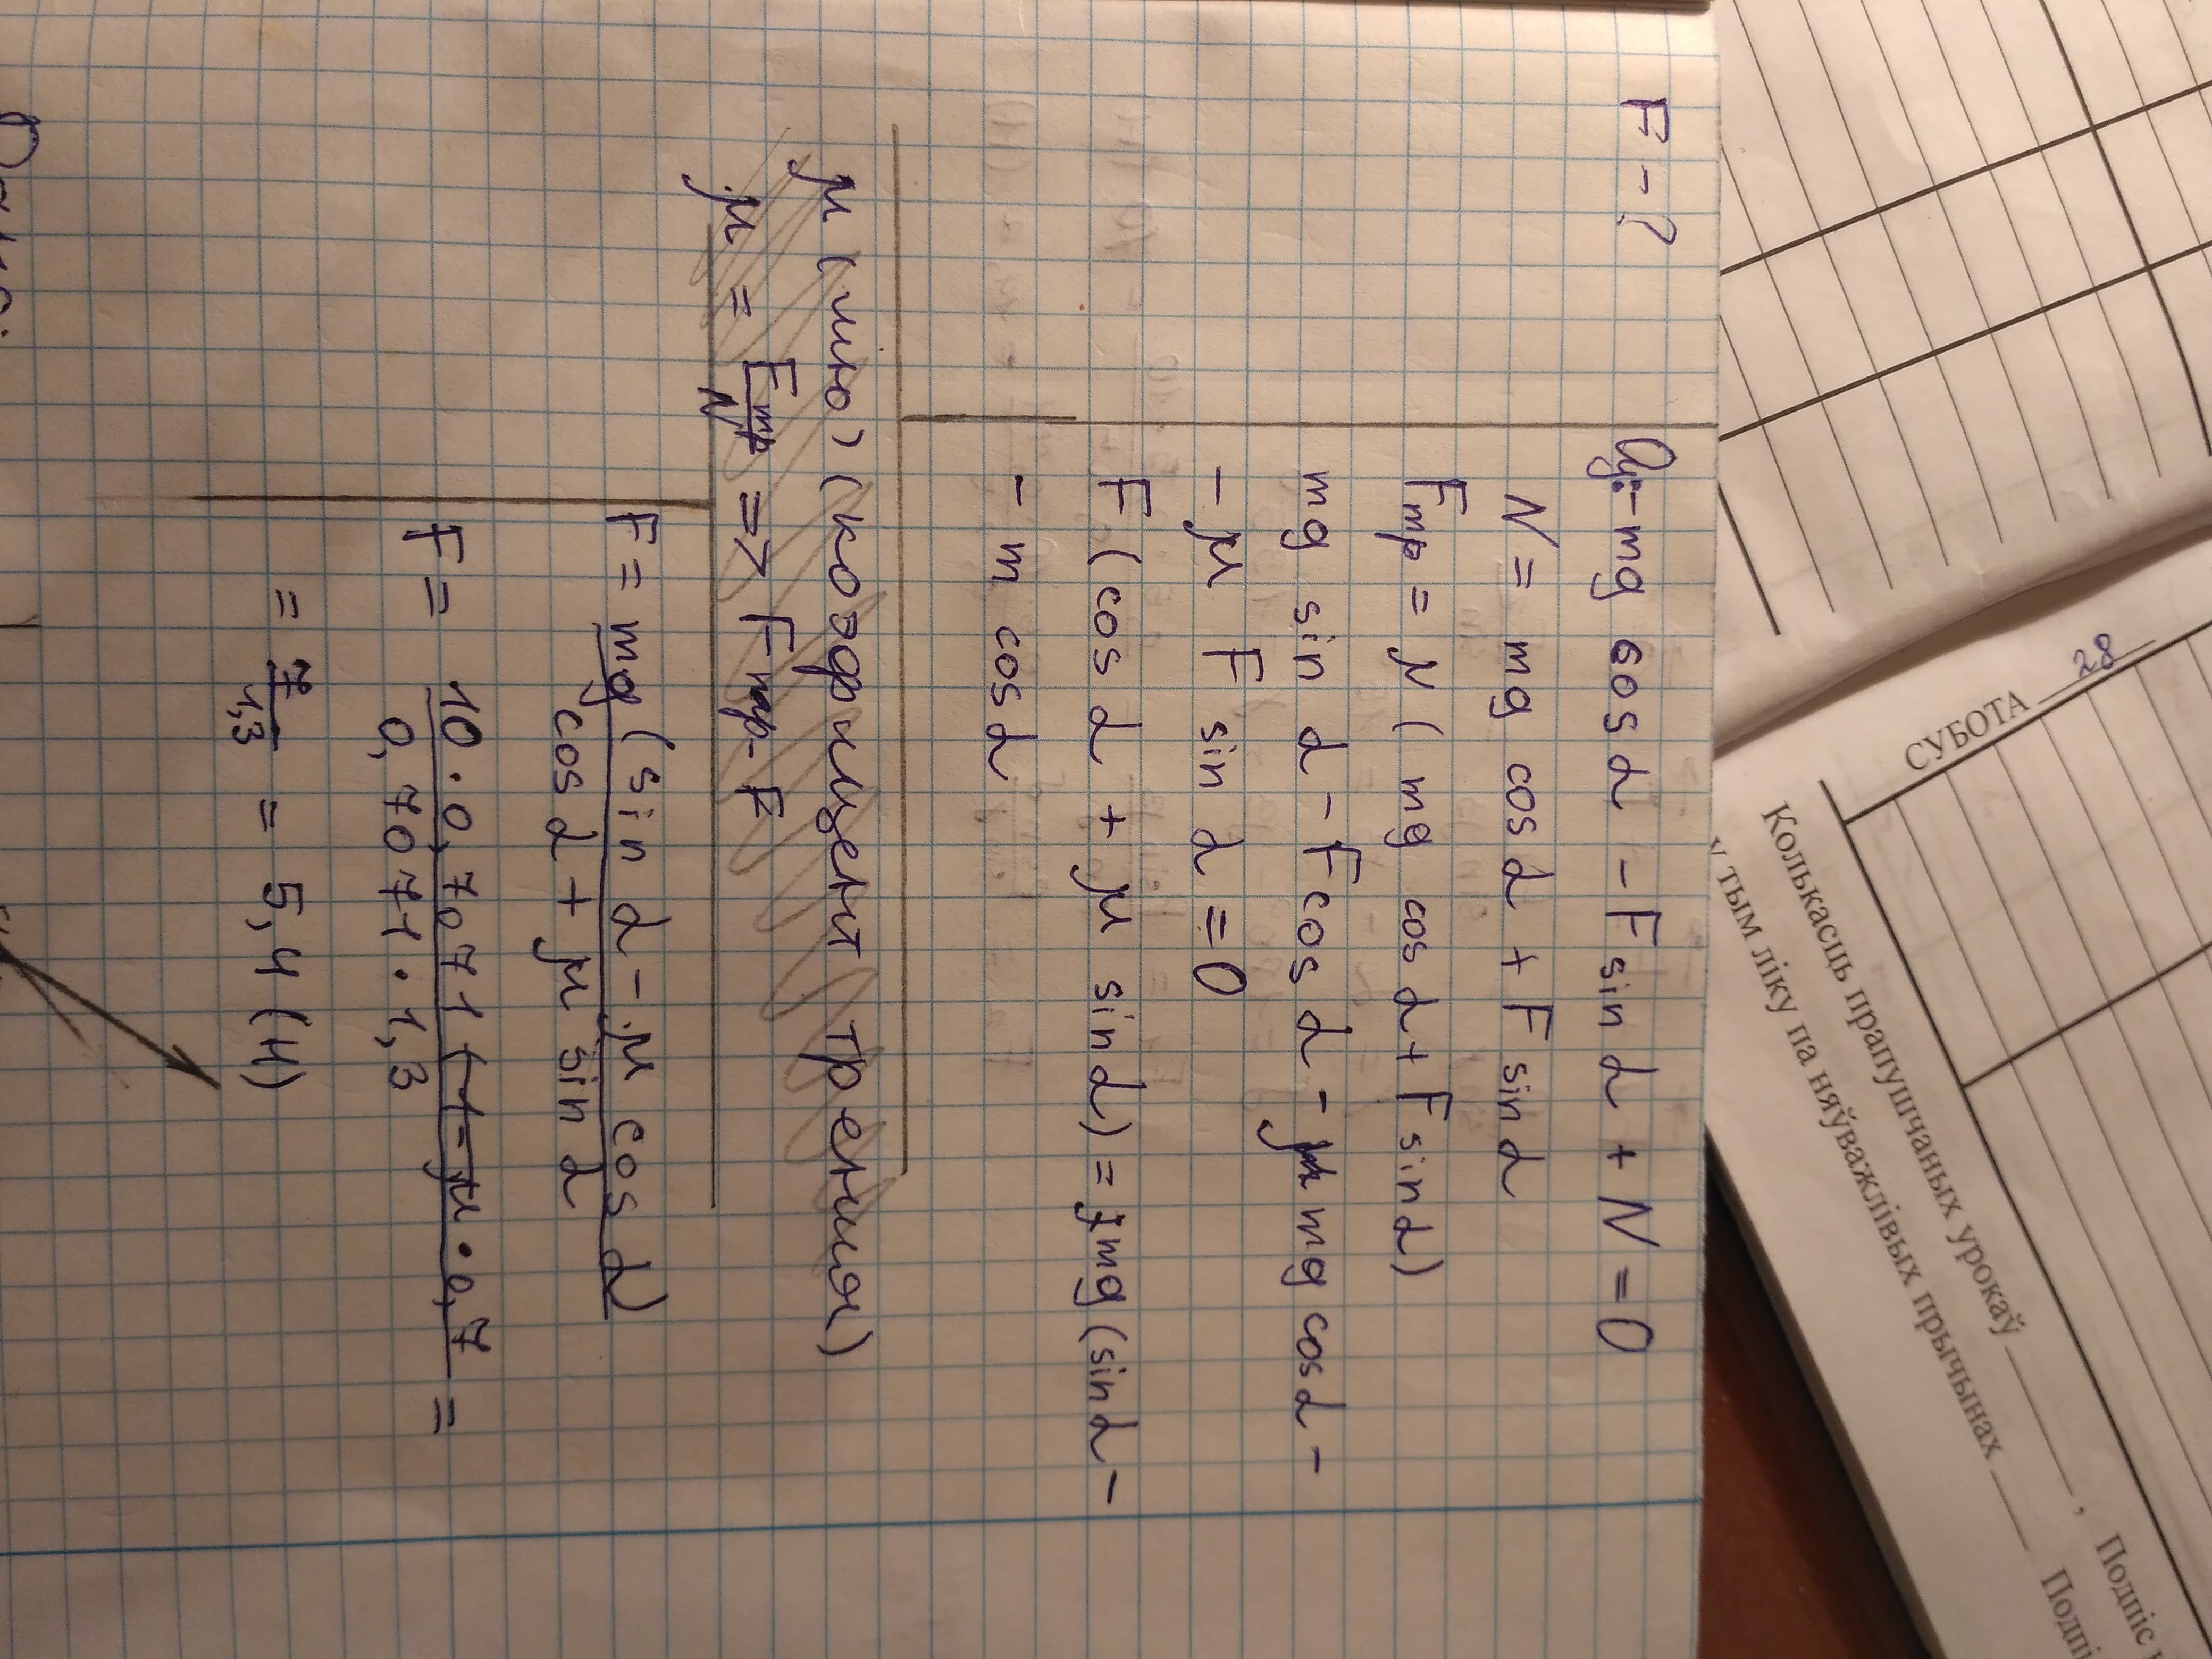 F - ?
Oy: -mg cos α - F sin α + N = 0
N = mg cos α + F sin α
Fтр = μ (mg cos α + F sin α)
mg sin α - F cos α - μ mg cos α -
- μ F sin α = 0
F (cos α + μ sin α) = mg (sin α -
- m cos α
μ (мю) (коэффициент трения)
μ = Fтр / N => Fтр - F
F = mg (sin α - μ cos α) / cos α + μ sin α
F = 10 · 0,7071 (1 - μ · 0,7 / 0,7071 · 1,3 =
= 7 / 1,3 = 5,4 (Н)
28
СУБОТА
Колькасць прапушчаных урокаў , Подпіс
у тым ліку па няўважлівых прычынах Подпі